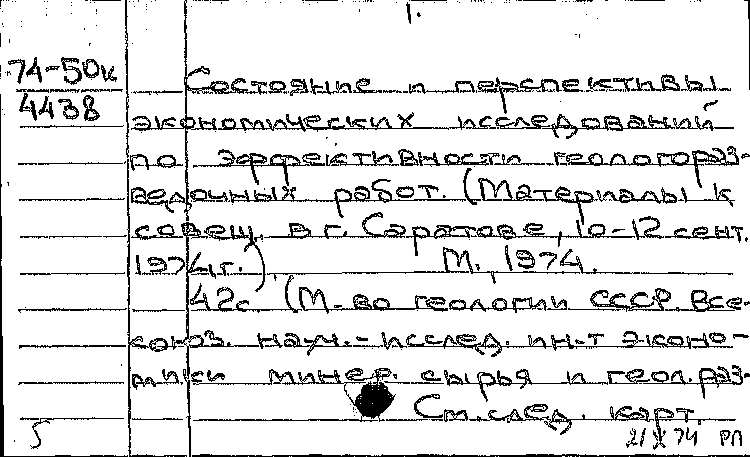 1.
74-50к
4438
Состояние и перспективы
экономических исследований
по эффективности геологораз-
ведочных работ. (Материалы к
совещ. в г. Саратове, 10-12 сент.
1974г.). М., 1974.
42с. (М-во геологии СССР. Все-
союз. науч.-исслед. ин-т эконо-
мики минер. сырья и геол. раз-
См. след. карт.
5
21 X 74 РП